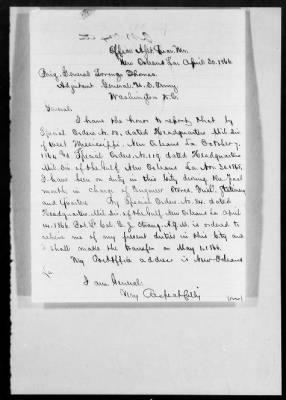 Office Asst. Quar. Mr.
New Orleans La. April 30. 1866
Brig. General Lorenzo Thomas.
Adjutant General U.S. Army
Washington D.C.
General:
I have the honor to report that by
Special Orders No. dated Headquarters Mil. Div
of West Mississippi, New Orleans La October 7.
186 and Special Orders No. 119 dated Headquarters
Mil. Div of the Gulf, New Orleans La Nov.
I have been on duty in this City during the past
month in charge of Engineer Stores, Fuel, Stationery
and Quarters. By Special Orders No. 84. dated
Headquarters Mil. Div. of the Gulf. New Orleans La April
14. 1866. Col. A.Q.M. is ordered to
relieve me of my present duties in this City and
I shall make the transfer on May 1. 1866.
My Post Office address is New-Orleans
La
I am General:
Very Respectfully
(over)